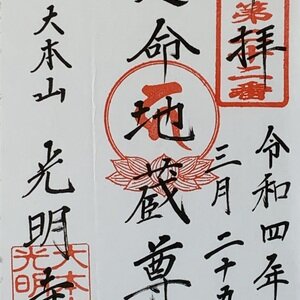 第廿二番
拝
令和四年
三月二十
延命地蔵尊
大本山 光明寺
大本
光明